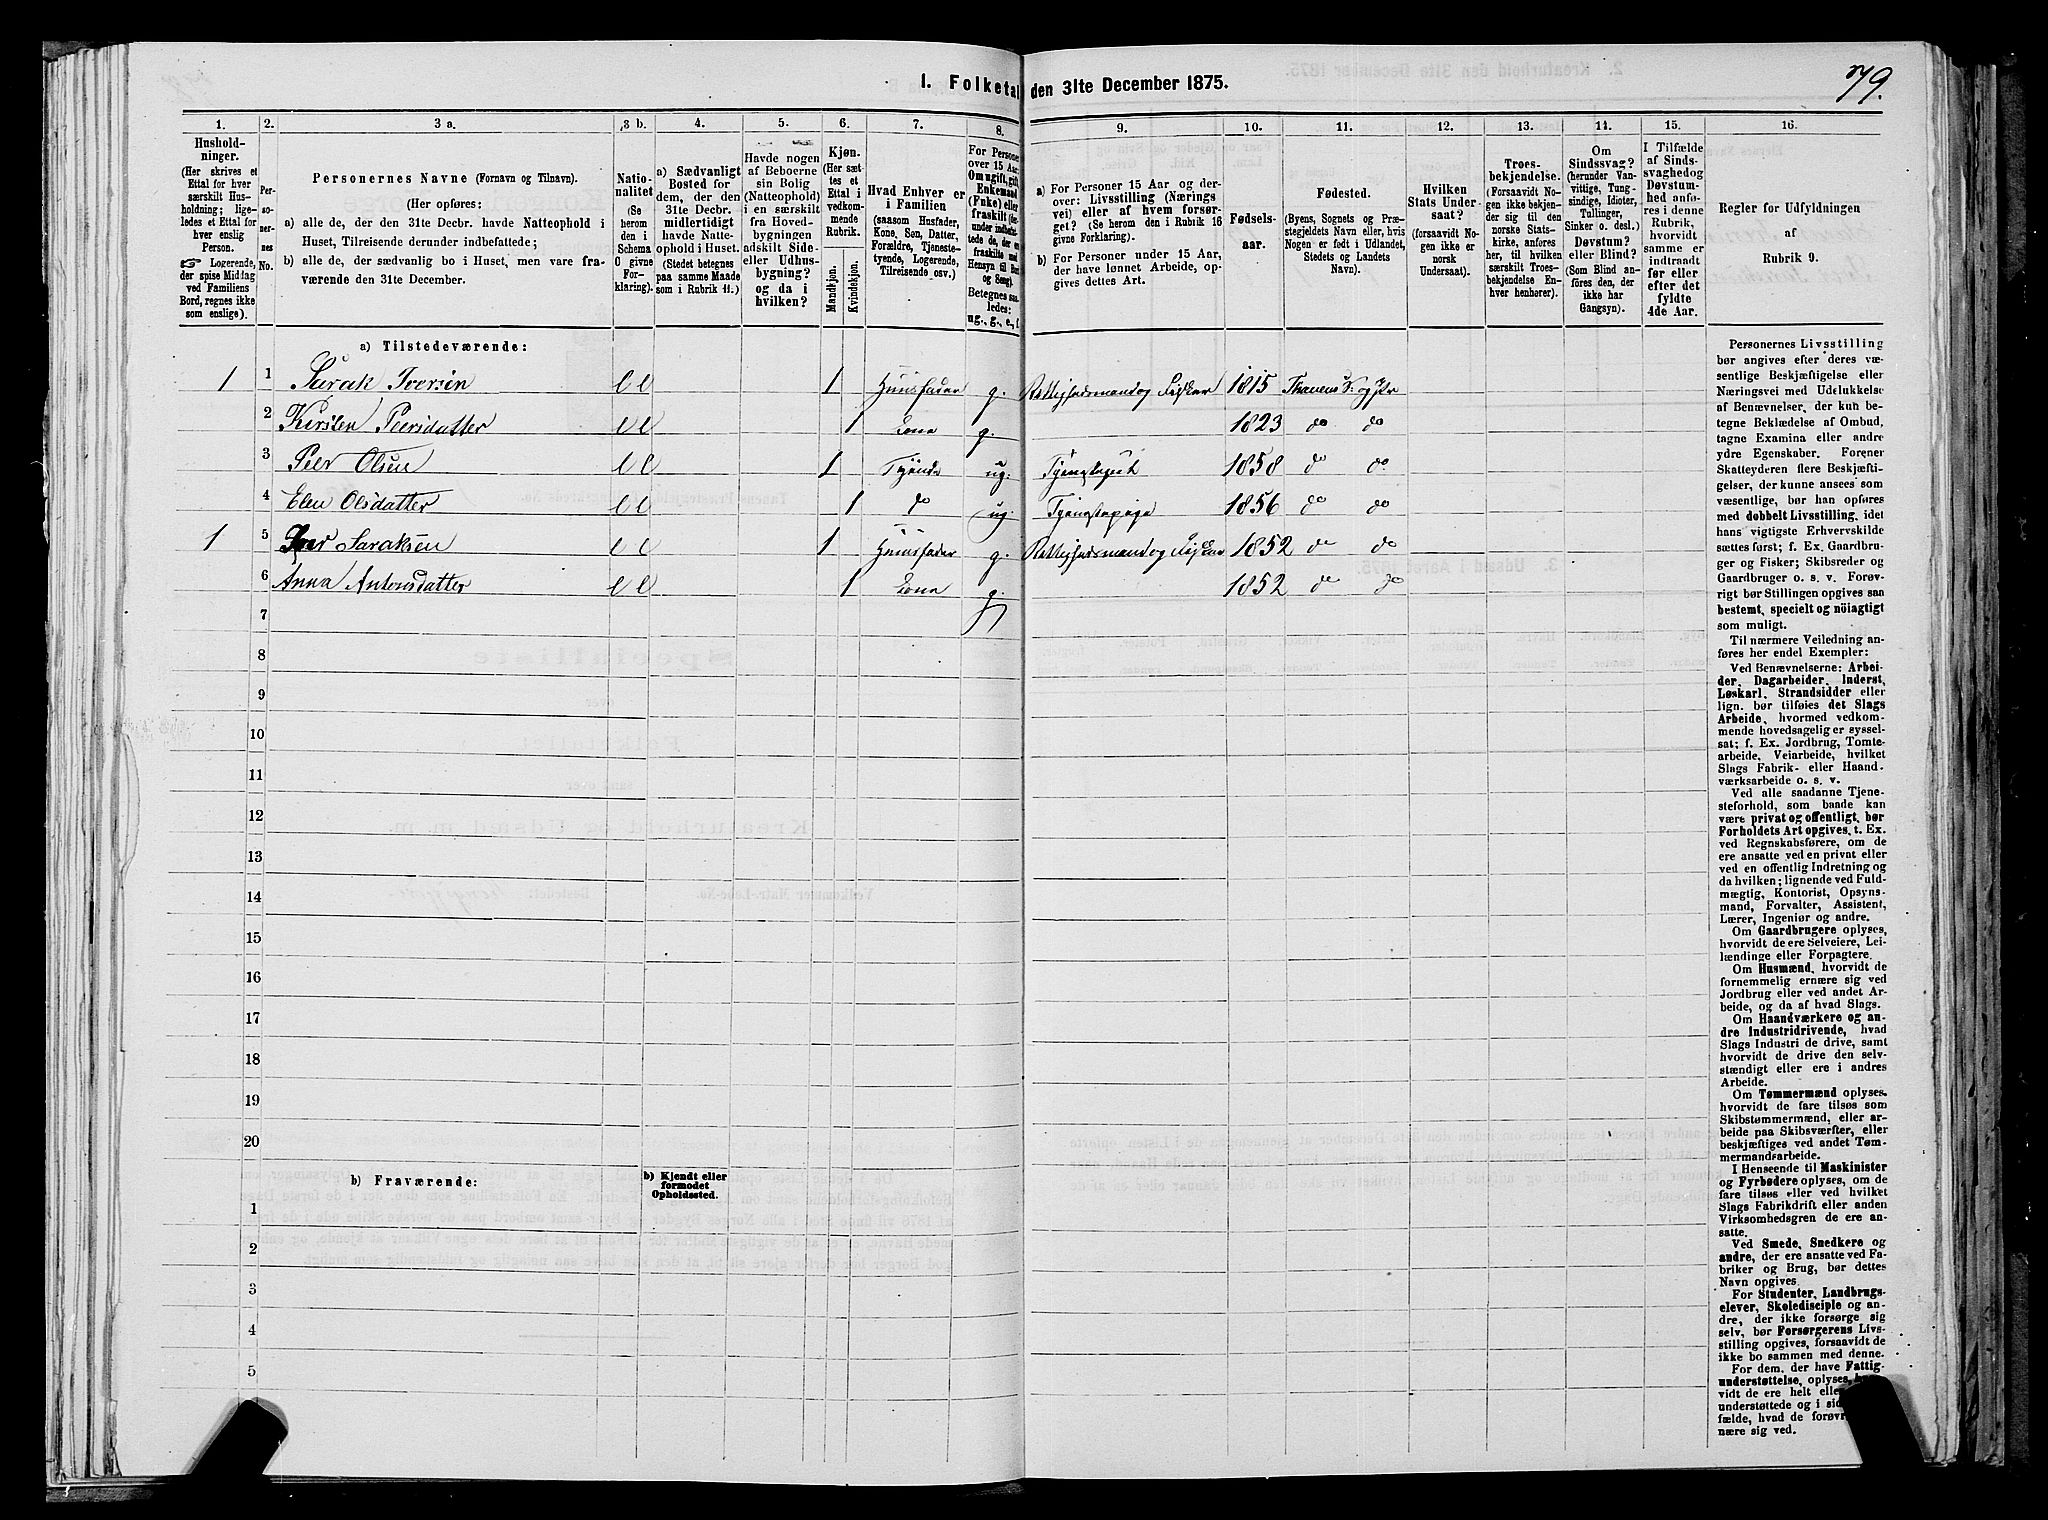 79.
1. Folketal den 31te December 1875.
1. 2. 3 a. 3 b. 4. 5. 6. 7. 8. 9. 10. 11. 12. 13. 14. 15. 16.
Husholdninger.
(Her skrives et
Ettal for hver
særskilt Husholdning;
ligeledes et Ettal for
hver enslig
Person.
☞ Logerende,
der spise Middag
ved Familiens
Bord, regnes ikke
som enslige).
Personernes No.
Personernes Navne (Fornavn og Tilnavn).
(Her opføres:
a) alle de, der den 31te Decbr. havde Natteophold i
Huset, Tilreisende derunder indbefattede;
b) alle de, der sædvanlig bo i Huset, men vare fraværende den 31te December.
Nationalitet
(Se
herom
den i
Schema
O givne
Forklaring).
a) Sædvanligt
Bosted for
dem, der den
31te Decbr.
midlertidigt
havde Natteophold i Huset.
(Stedet betegnes
paa samme Maade
som i Rubrik 11.)
Havde nogen
af Beboerne
sin Bolig
(Natteophold)
i en særskilt
fra Hovedbygningen
adskilt Side-
eller Udhusbygning?
og da i
hvilken?
Kjøn.
(Her sættes et
Ettal i
vedkommende
Rubrik.
Mandkjøn.
Kvindekjøn.
Hvad Enhver er
i Familien
(saasom Husfader,
Kone, Søn, Datter,
Forældre, Tjenestetyende, Logerende,
Tilreisende osv.)
For Personer
over 15 Aar:
Om ugift, gift,
Enkemand
(Enke) eller
fraskilt
Betegnes saaledes:
ug., g., e., f.
a) For Personer 15 Aar og derover: Livsstilling (Næringsvei) eller af hvem forsørget? (Se herom den i Rubrik 16
givne Forklaring).
b) For Personer under 15 Aar,
der have lønnet Arbeide, opgives dettes Art.
Fødselsaar.
Fødested.
(Byens, Sognets og Præstegjeldets Navn eller, hvis
Nogen er født i Udlandet,
Stedets og Landets
Navn).
Hvilken
Stats Undersaat?
(forsaavidt Nogen ikke er
norsk
Undersaat).
Troesbekjendelse.
(Forsaavidt Nogen ikke bekjender sig til den
norske Statskirke, anføres
her, til hvilken
særskilt Troesbekjendelse Enhver henhører).
Om
Sindssvag?
(herunder Vanvittige, Tungsindige, Idioter,
Tullinger,
Sinker o. desl.)
Døvstum?
eller Blind?
(Som Blind anføres den, der
ikke har
Gangsyn).
I Tilfælde
af Sindssvaghed og
Døvstumhed anføres i denne
Rubrik,
hvorvidt
samme er
indtraadt
før eller
efter det
fyldte
4de Aar.
Regler for Udfyldningen
af
Rubrik 9.
a) Tilstedeværende:
1 1 Sarak Iversen l l 1 Huusfader g. Rettighedsmand og Fisker 1815 Thanens S. og Pr
2 Kirsten Peersdatter l l 1 Kona g. 1823 do do
3 Peer Olsen l l 1 Tyende ug: Tjenstegut 1858 do do
4 Elen Olsdatter l l 1 do ug. Tjenstepige 1856 do do
1 5 Iver Saraksen l l 1 Huusfader g. Rettighedsmand og Fisker 1852 do do
6 Anna Antonsdatter l l 1 Kona g. 1852 do do
7
8
9
10
11
12
13
14
15
16
17
18
19
20
b) Fraværende:
b) Kjendt eller
formodet
Opholdssted.
1
2
3
4
5
Personernes Livsstilling
bør angives efter deres væsentlige Beskjæftigelse eller
Næringsvei med Udelukkelse
af Benævnelser, der kun betegne Beklædelse af Ombud,
tagne Examina eller andre
ydre Egenskaber. Forener
Skatteyderen flere Beskjæftigelser, der kunne ansees som
væsentlige, bør han opføres
med dobbelt Livsstilling, idet
hans vigtigste Erhvervskilde
sættes først; f. Ex. Gaardbruger og Fisker; Skibsreder og
Gaardbruger o. s. v. Forøvrigt bør Stillingen opgives saa
bestemt, specielt og nöiagtigt
som muligt.
Til nærmere Veiledning anføres her endel Exempler:
Ved Benævnelserne: Arbeider, Dagarbeider, Inderst,
Løskarl, Strandsidder eller
lign. bør tilføies det Slags
Arbeide, hvormed vedkommende hovedsagelig er sysselsat; f. Ex. Jordbrug, Tomtearbeide, Veiarbeide, hvilket
Slags Fabrik- eller Haandværksarbeide o. s. v.
Ved alle saadanne Tjenesteforhold, som baade kan
være privat og offentligt, bør
Forholdets Art opgives, t. Ex.
ved Regnskabsførere, om de
ere ansatte ved en privat eller
ved en offentlig Indretning og
da hvilken; lignende ved Fuldmægtig, Kontorist, Opsynsmand, Forvalter, Assistent,
Lærer, Ingeniør og andre.
Om Gaardbrugere oplyses,
hvorvidt de ere Selveiere, Leilændinge eller Forpagtere.
Om Husmænd, hvorvidt de
fornemmelig ernære sig ved
Jordbrug eller ved andet Arbeide, og da af hvad Slags.
Om Haandværkere og andre Industridrivende, hvad
Slags Industri de drive, samt
hvorvidt de drive den selvstændigt eller ere i andres
Arbeide.
Om Tømmermænd oplyses,
hvorvidt de fare tilsøs som
Skibstømmermænd, eller arbeide paa Skibsværfter, eller
beskjæftiges ved andet Tømmermandsarbeide.
I Henseende til Maskinister
og Fyrbødere oplyses, om de
fare tilsøs eller ved hvilket
Slags Fabrikdrift eller anden
Virksomhedsgren de ere ansatte.
Ved Smede, Snedkere og
andre, der ere ansatte ved Fabriker og Brug, bør dettes
Navn opgives.
For Studenter, Landbrugselever, Skoledisciple og andre, der ikke forsørge sig
selv, bør Forsørgerens Livsstilling opgives, forsaavidt de
ikke bo sammen med denne.
For dem, der have Fattigunderstøttelse, oplyses,
vidt de ere helt eller
understøttede og i
fælde, hvad de
nære sig ved.